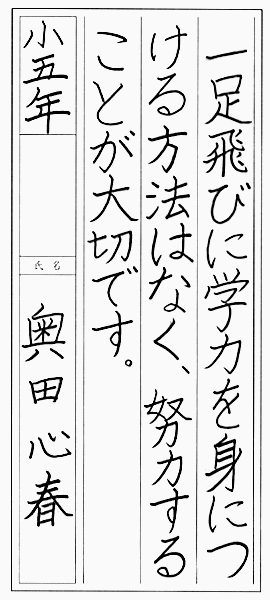 一足飛びに学力を身につ
ける方法はなく、努力する
ことが大切です。
小五年
氏名
奥田心春